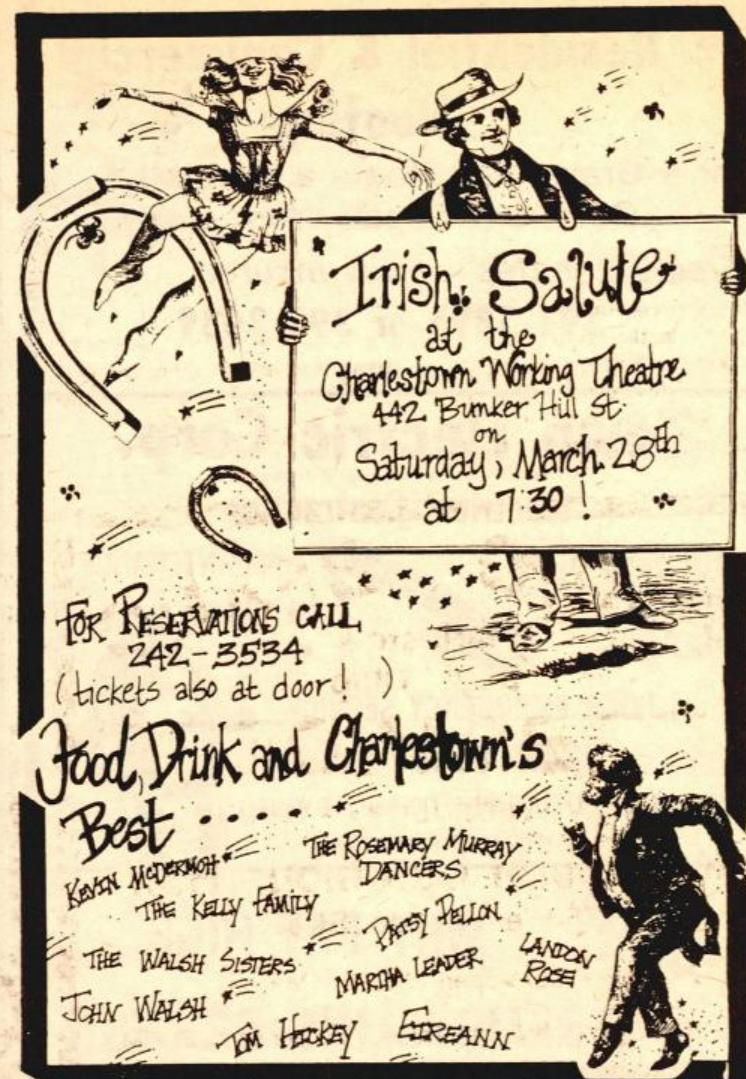 Irish Salute
at the
Charlestown Working Theatre
442 Bunker Hill St.
on
Saturday, March 28th
at 7:30!
FOR RESERVATIONS CALL
242-3534
(tickets also at door! )
Food, Drink and Charlestown's
Best ....
KEVIN McDERMOTT
THE ROSEMARY MURRAY
DANCERS
THE KELLY FAMILY
PATSY PELLON
THE WALSH SISTERS
MARTHA LEADER
LANDON
ROSE
JOHN WALSH
TOM HICKEY
EIREANN